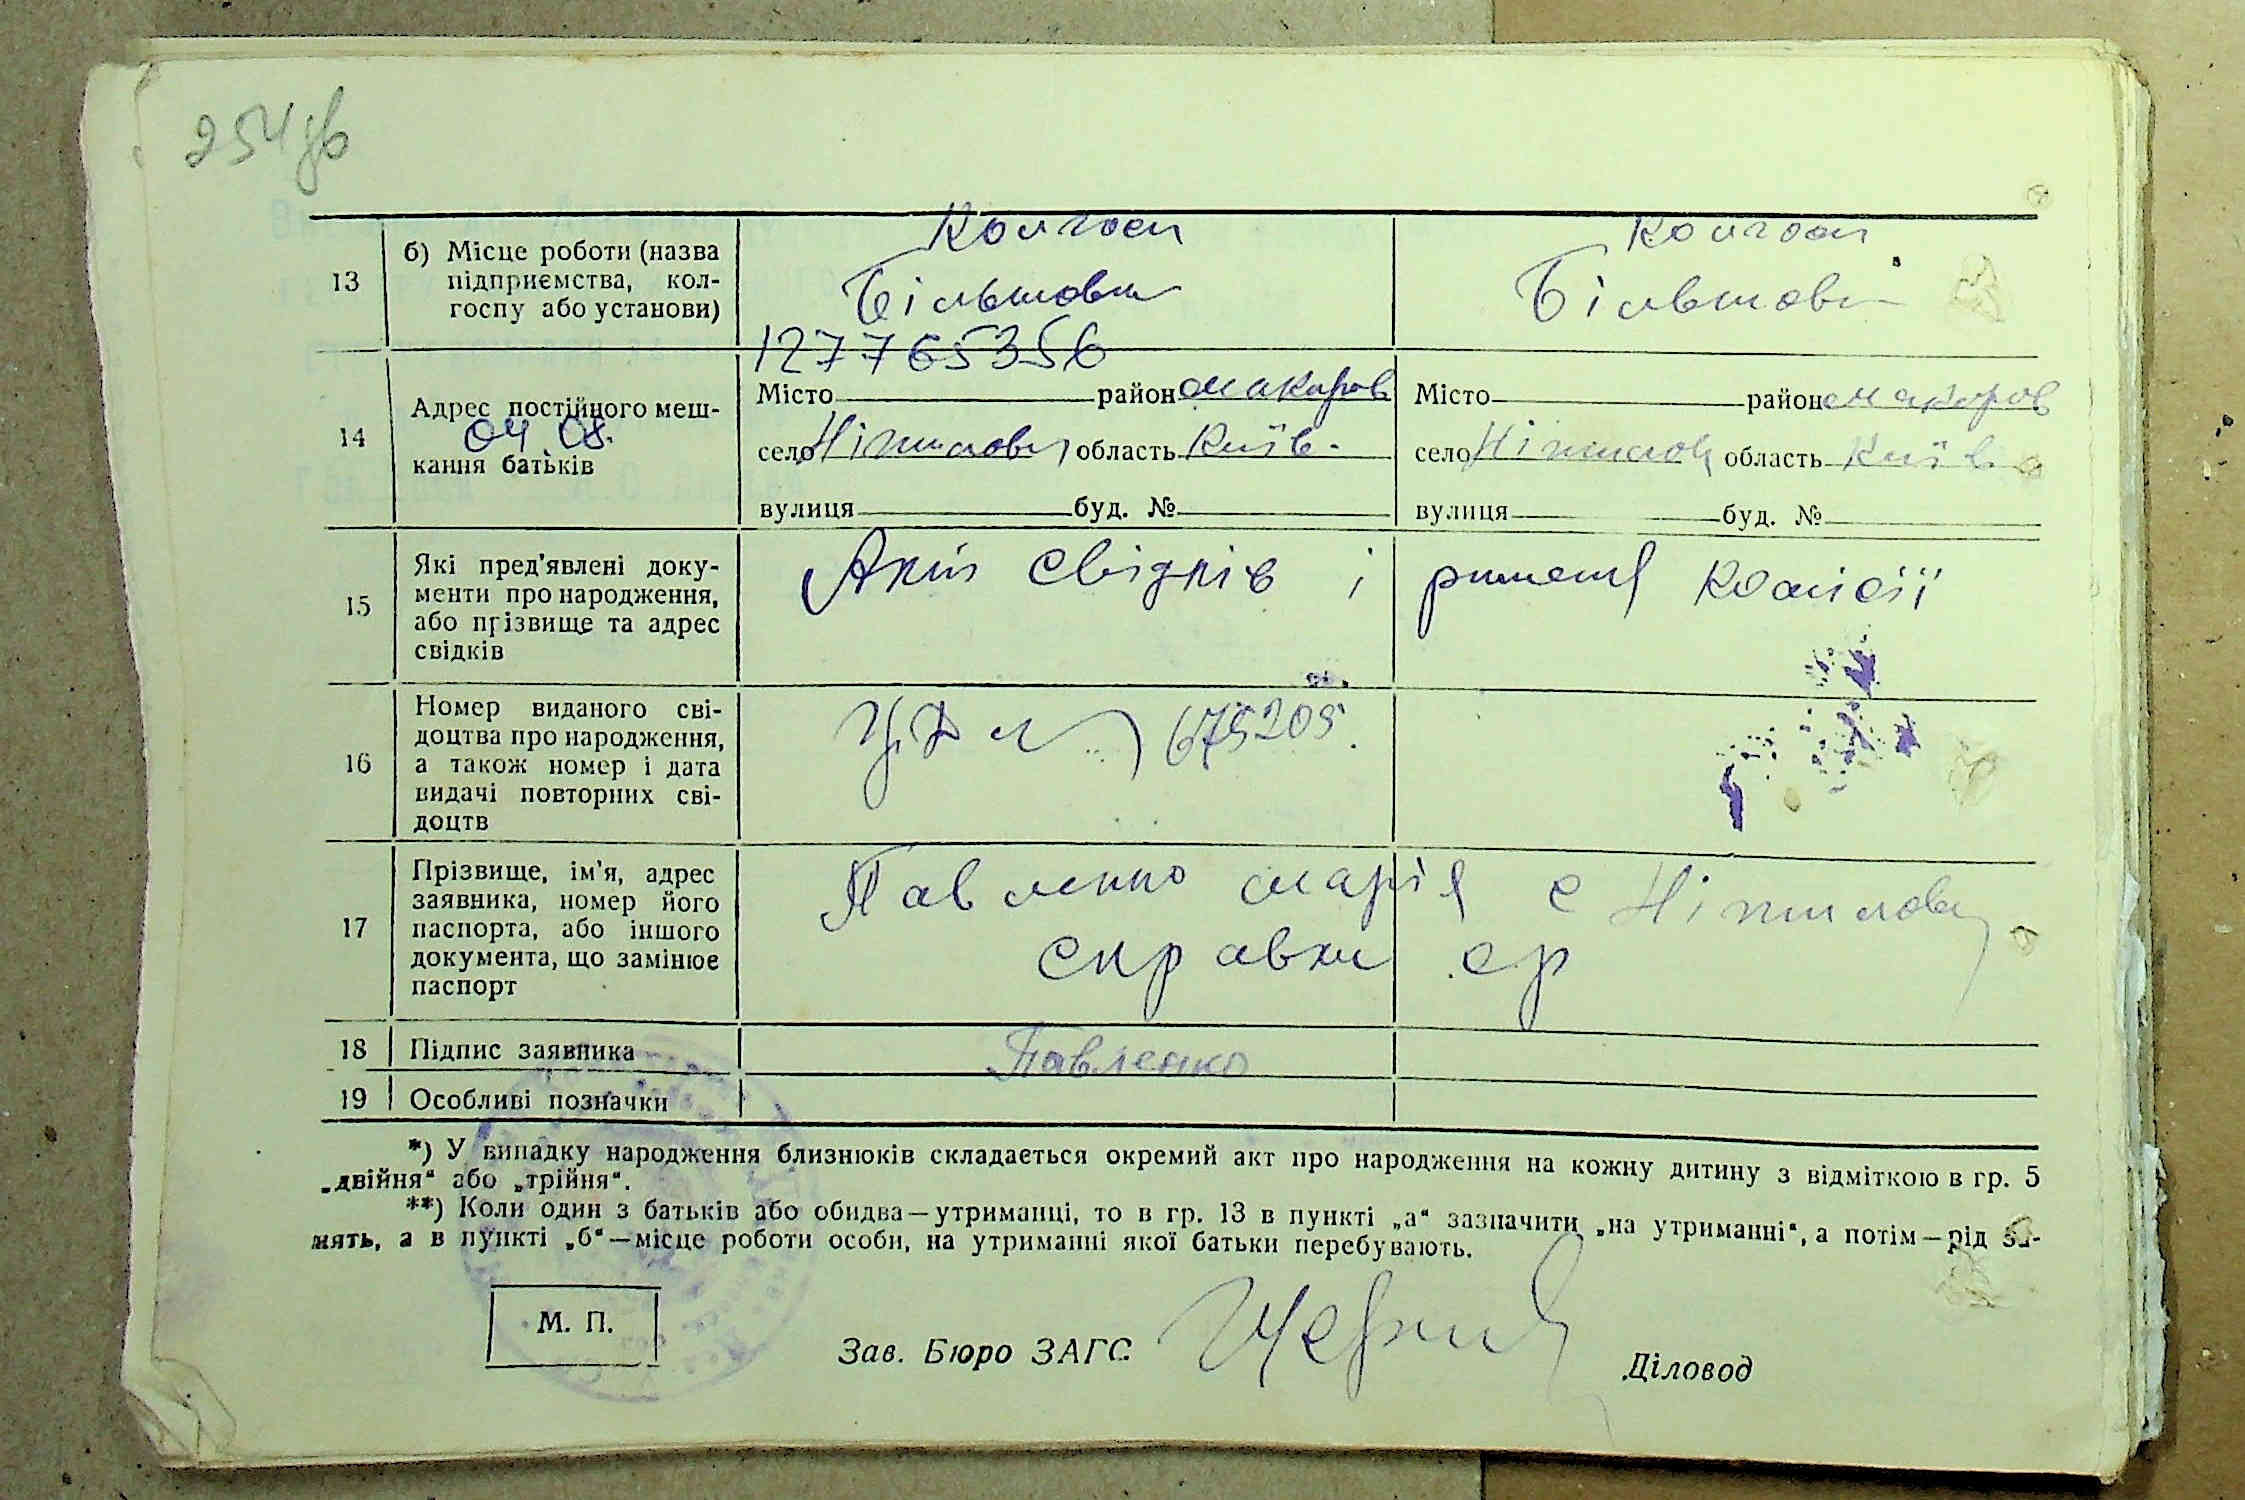 254 зв
13 б) Місце роботи (назва підприємства, колгоспу або установи) Колгосп Більшовик Колгосп Більшовик
127765356
14 Адрес постійного мешкання батьків 04 08.
Місто район Макарів Місто район Макаров
село Ніжиловичі область Київ. село область Київ
вулиця буд. № вулиця буд. №
15 Які пред'явлені документи про народження, або прізвище та адрес свідків Акт свідків і рішення комісії
16 Номер виданого свідоцтва про народження, а також номер і дата видачі повторних свідоцтв 675205.
17 Прізвище, ім'я, адрес заявника, номер його паспорта, або іншого документа, що замінює паспорт Павленко Марія с Ніжиловичі
справки ср
18 Підпис заявника Павленко
19 Особливі позначки
*) У випадку народження близнюків складається окремий акт про народження на кожну дитину з відміткою в гр. 5
„двійня“ або „трійня“.
**) Коли один з батьків або обидва—утриманці, то в гр. 13 в пункті „а“ зазначити „на утриманні“, а потім—рід за-
нять, а в пункті „б“—місце роботи особи, на утриманні якої батьки перебувають.
М. П.
Зав. Бюро ЗАГС Діловод